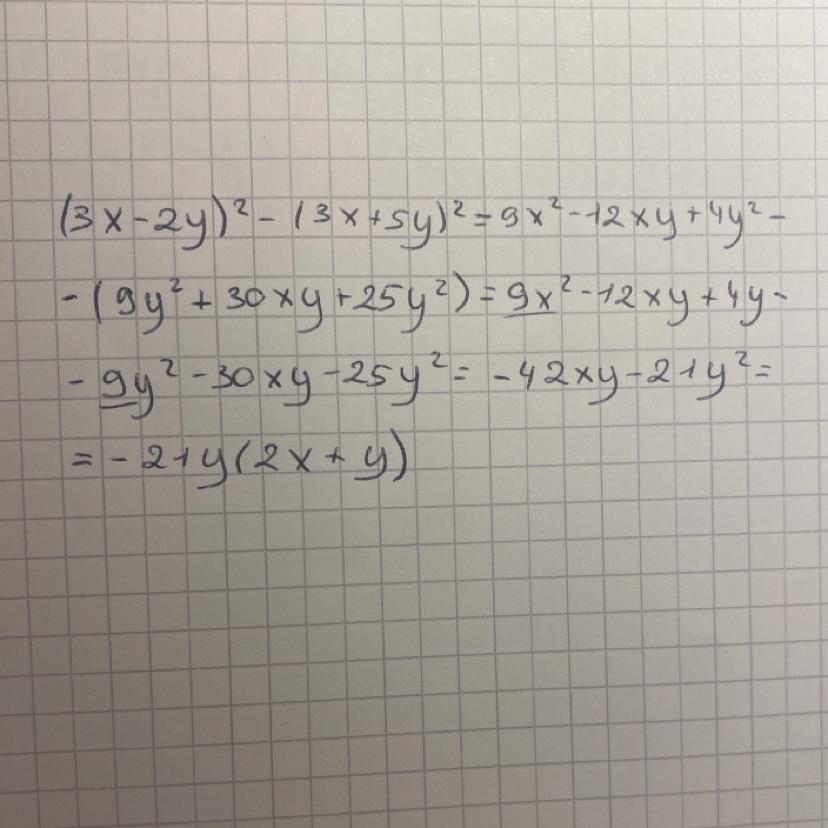 (3x-2y)²-(3x+5y)²=9x²-12xy+4y²-
-(9y²+30xy+25y²)=9x²-12xy+4y-
-9y²-30xy-25y²=-42xy-21y²=
=-21y(2x+y)